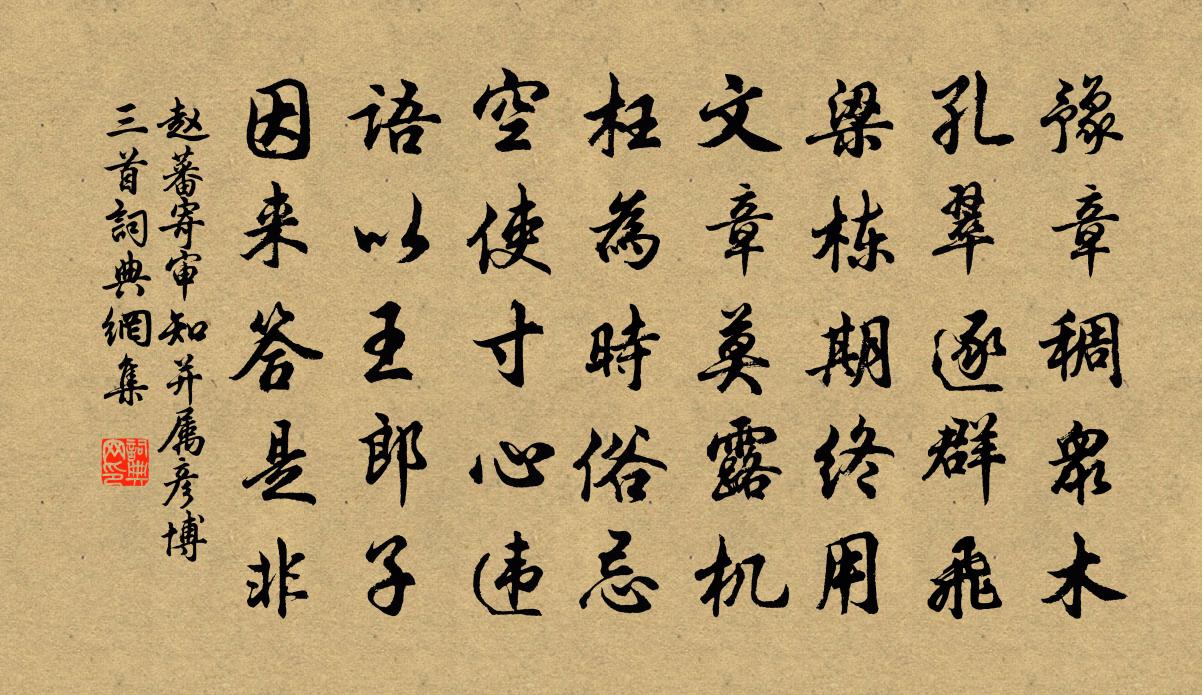 豫章稠衆木
孔翠逐群飛
梁栋期终用
文章莫露机
枉為時俗忌
空使寸心违
語以王郎子
因来答是非
赵蕃寄审知并属彦博
三首詞典網集
詞典网印